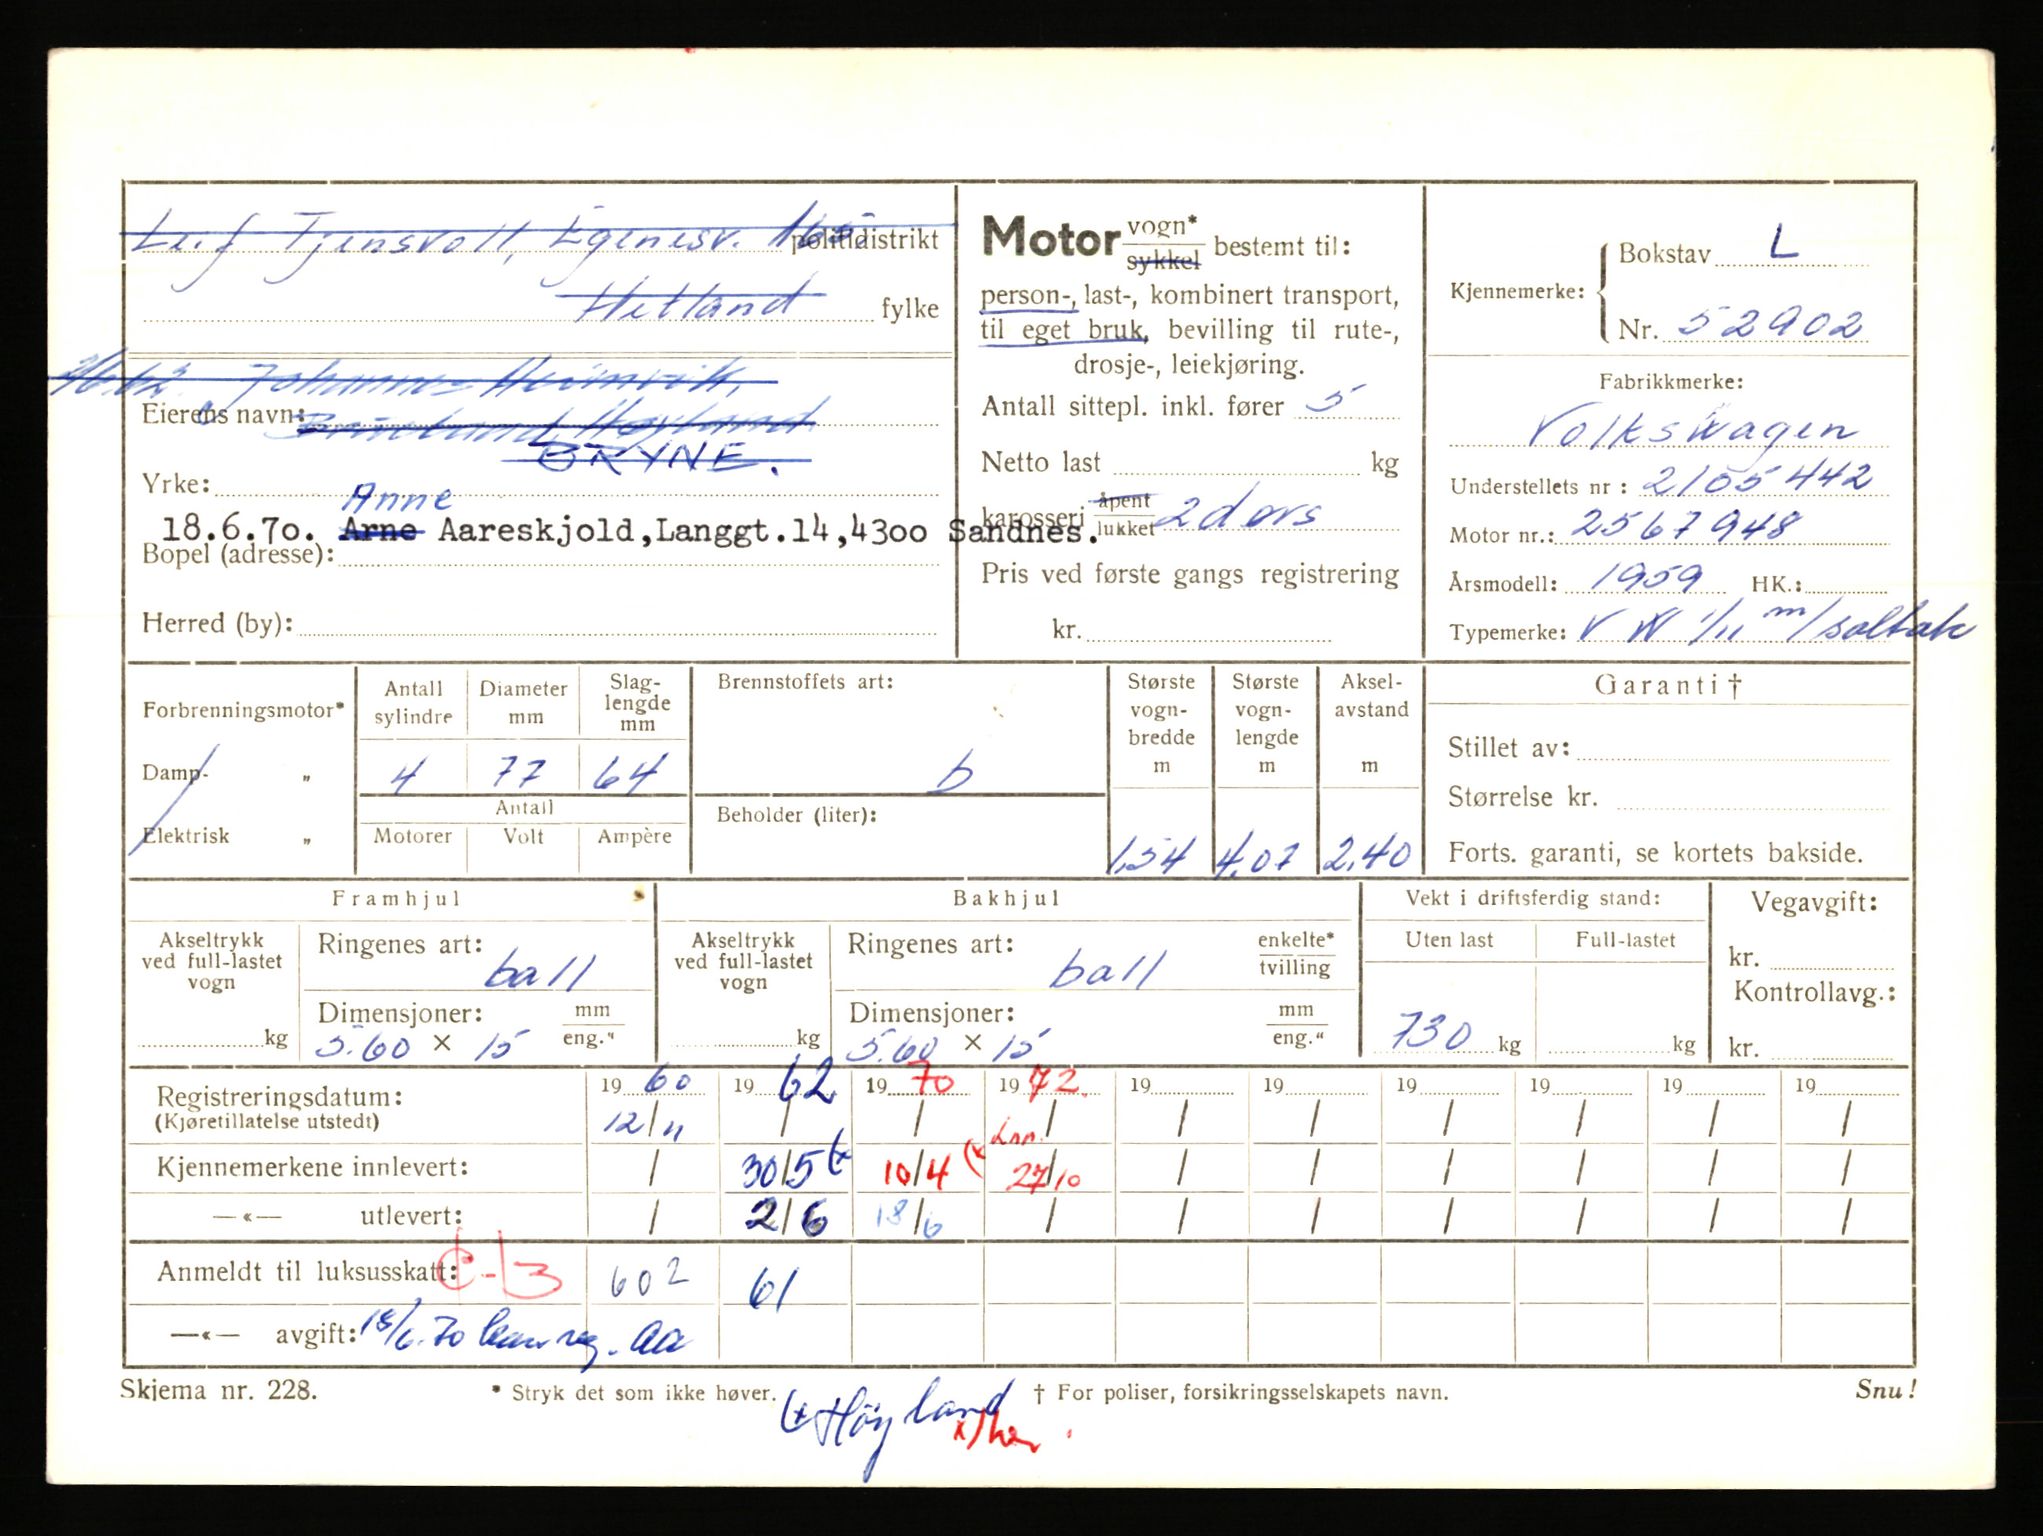 Leif Tjensvoll, Egenesv. politidistrikt
Hetland fylke
Johannes
Eierens navn: Høyland
BRYNE.
Yrke:
Anne
18.6.70. Arne Aareskjold,Langgt.14,4300 Sandnes.
Bopel (adresse):
Herred (by):
Motor vogn* / sykkel bestemt til:
person-, last-, kombinert transport,
til eget bruk, bevilling til rute-,
drosje-, leiekjøring.
Antall sittepl. inkl. fører 5
Netto last kg
karosseri åpent / lukket 2 dørs
Pris ved første gangs registrering
kr.
Kjennemerke: Bokstav L
Nr. 52902
Fabrikkmerke:
Volkswagen
Understellets nr: 2105442
Motor nr.: 2567948
Årsmodell: 1959 HK.:
Typemerke: VW 1/11 m/soltak
Forbrenningsmotor*
Damp- „
Elektrisk „
Antall sylindre Diameter mm Slag-lengde mm
4 77 64
Antall
Motorer Volt Ampère
Brennstoffets art:
b
Beholder (liter):
Største vogn-bredde m Største vogn-lengde m Aksel-avstand m
1.54 4.07 2.40
Garanti †
Stillet av:
Størrelse kr.
Forts. garanti, se kortets bakside.
Framhjul
Akseltrykk ved full-lastet vogn kg
Ringenes art: ball
Dimensjoner: mm / eng."
5.60 × 15
Bakhjul
Akseltrykk ved full-lastet vogn kg
Ringenes art: enkelte* / tvilling
ball
Dimensjoner: mm / eng."
5.60 × 15
Vekt i driftsferdig stand:
Uten last Full-lastet
730 kg kg
Vegavgift:
kr.
Kontrollavg.:
kr.
19 60 19 62 19 70 19 72. 19 19 19 19 19 19
Registreringsdatum:
(Kjøretillatelse utstedt) 12/11 / / / / / / / / /
Kjennemerkene innlevert: / 30/5 (x 10/4 (x 27/10 / / / / / /
—«— utlevert: / 2/6 18/6 / / / / / / /
Anmeldt til luksusskatt: 602 61
—«— avgift: 18/6.70 reg. aa
Skjema nr. 228. * Stryk det som ikke høver. † For poliser, forsikringsselskapets navn. Snu!
(x Höyland
x)